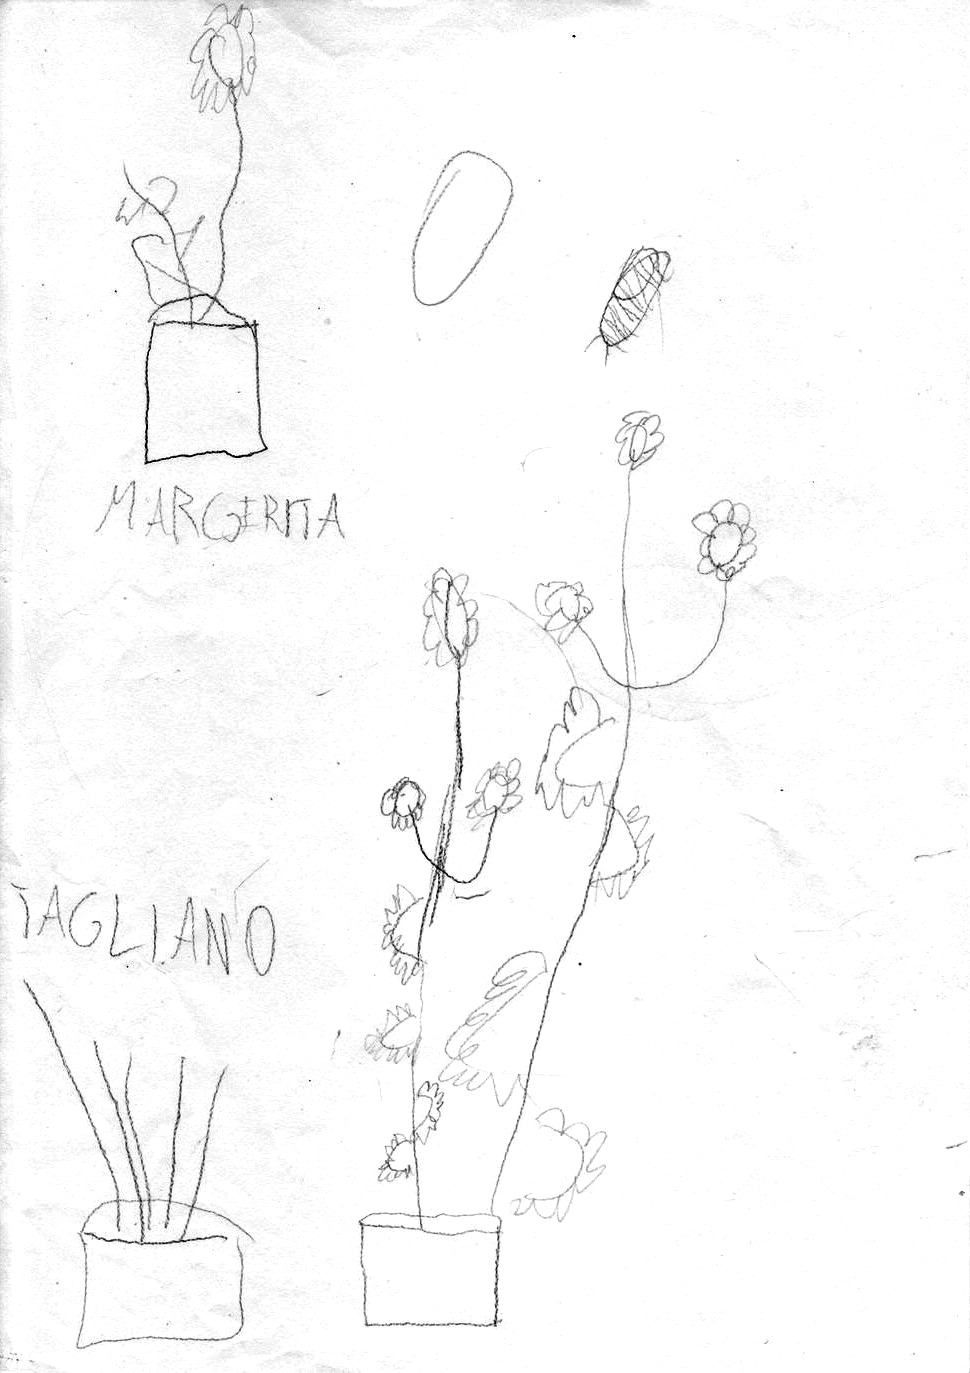 MARGERITA
TAGLIANO